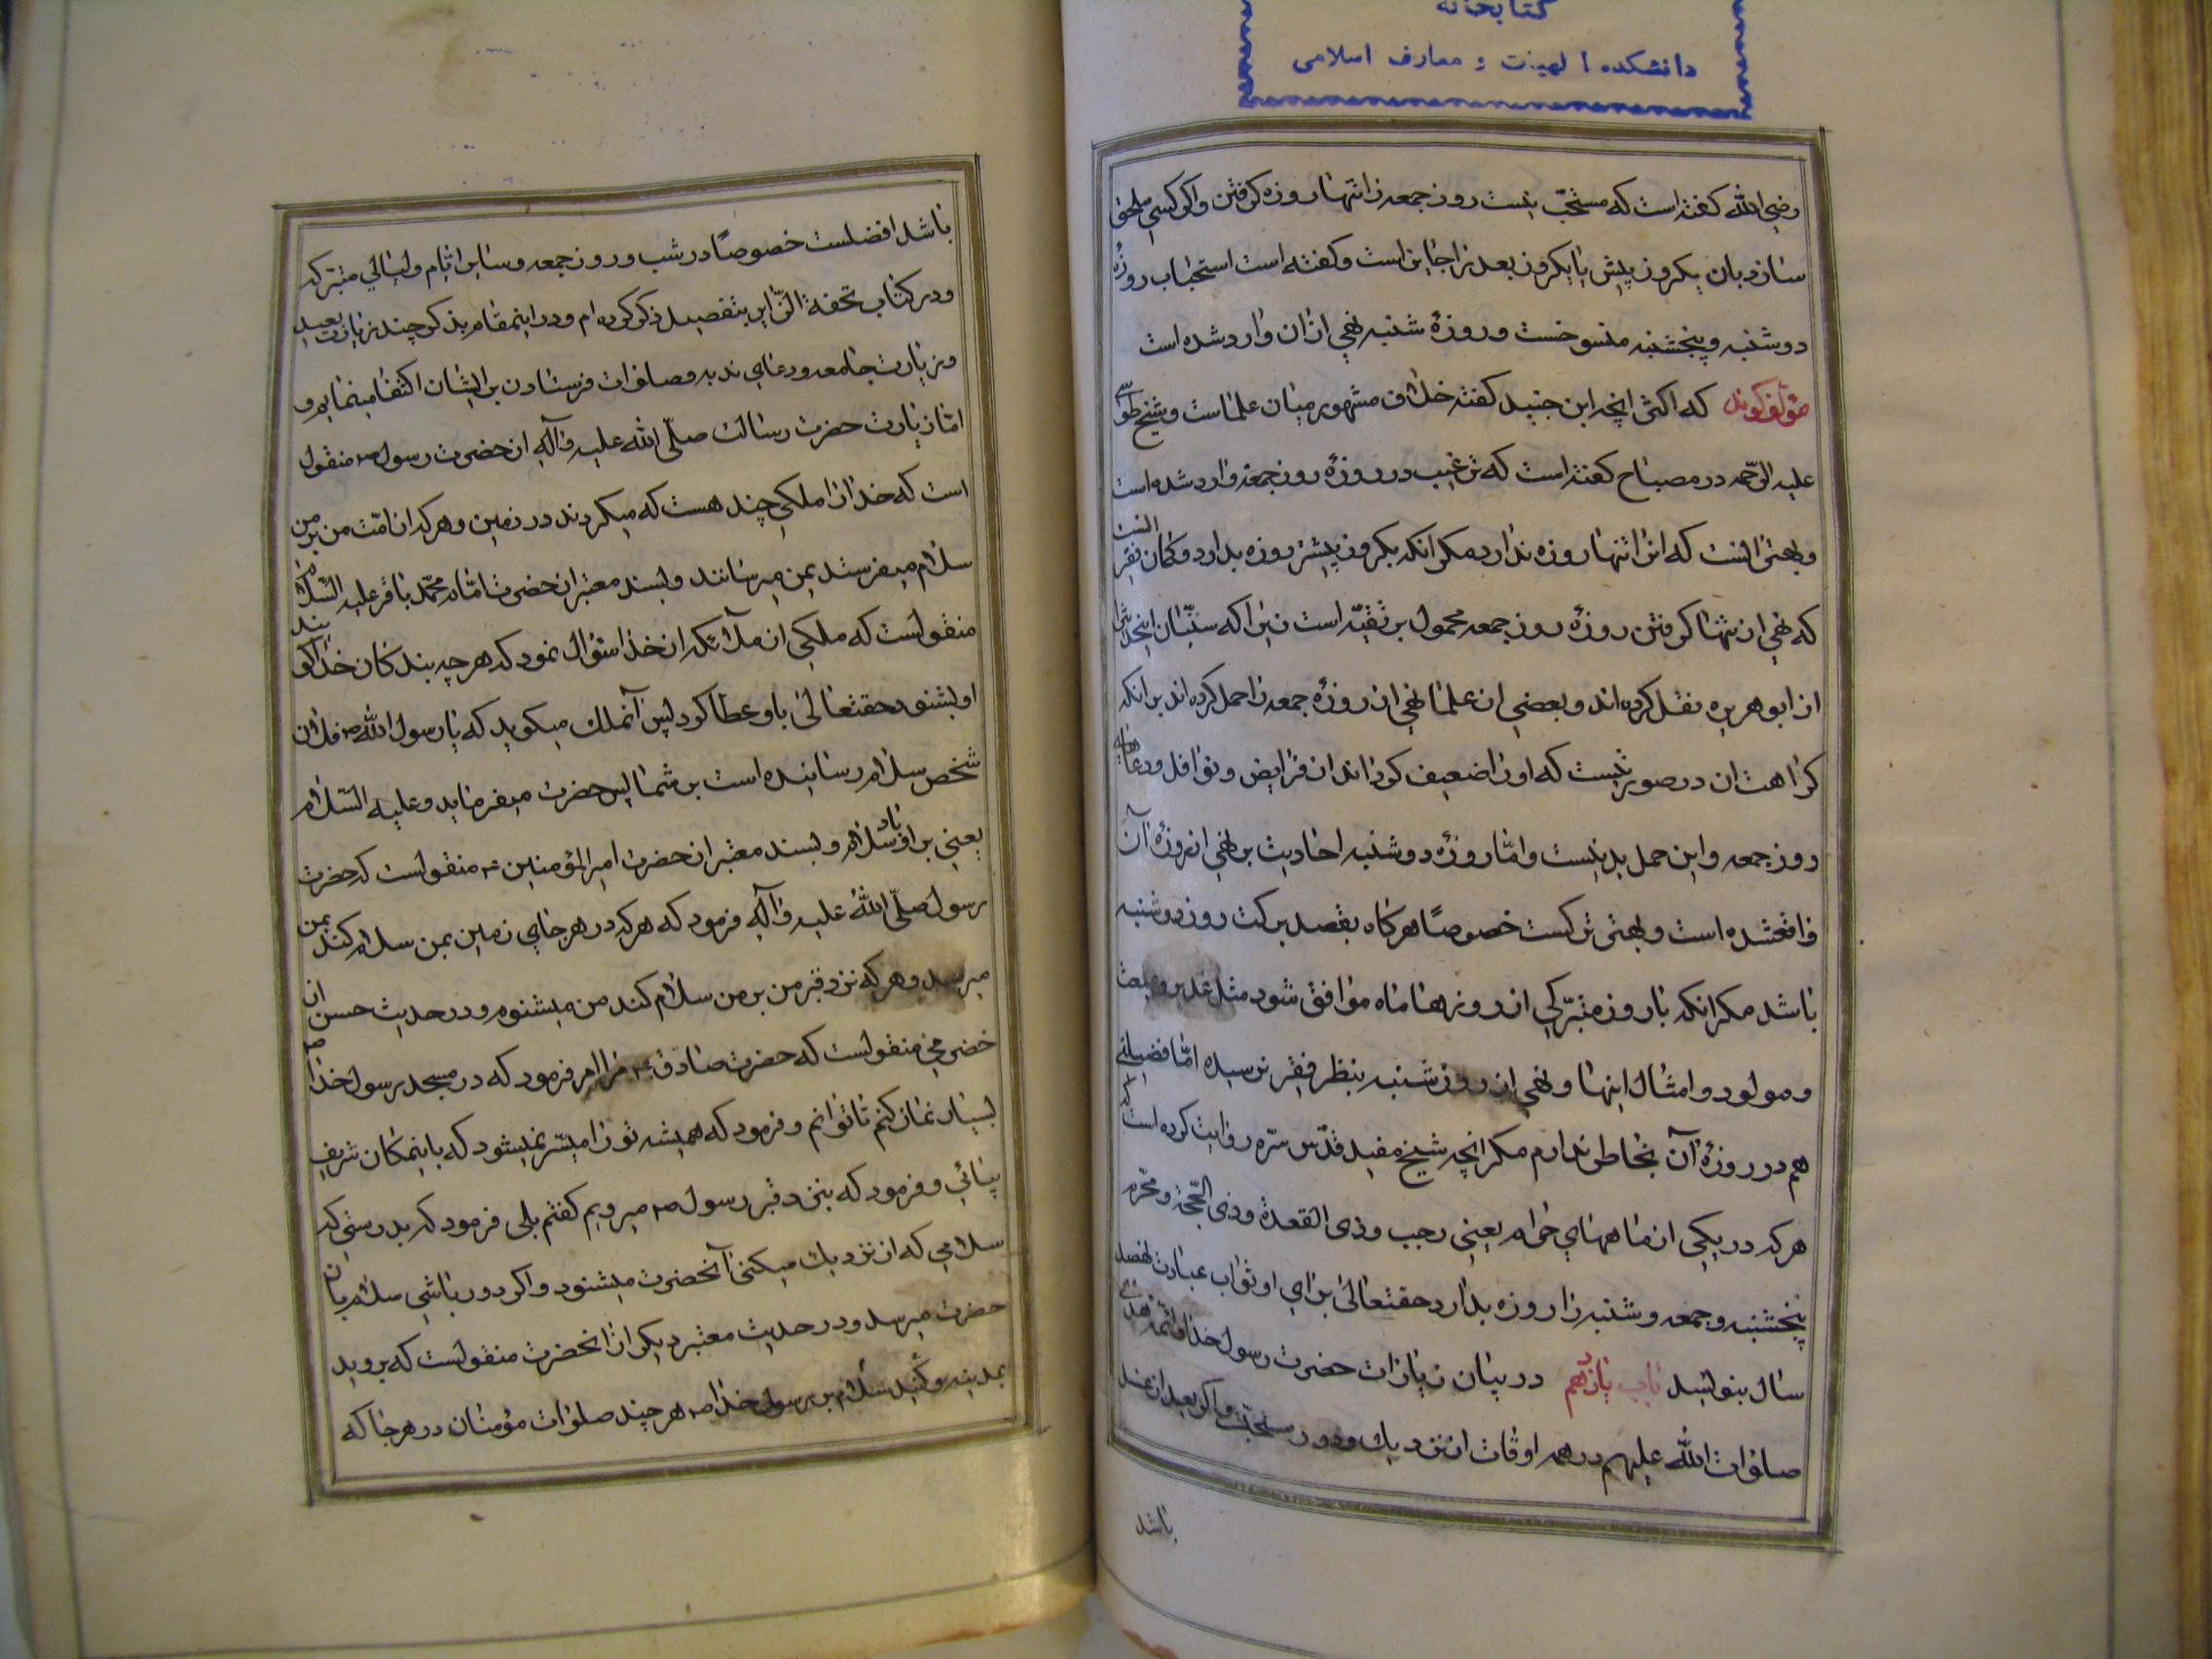 کتابخانه
دانشکده الهیات و معارف اسلامی
رضی الله کفته است که مستحبّ نیست روز جمعه را تنها روزه کرفتن و اکر کسی ملحق
سازد بان یکروز پیش یا یکروز بعد نزاجایز است و کفته است استحباب روزهٔ
دوشنبه و پنجشنبه منسوخست و روزهٔ شنبه نهی ازان وارد شده است
مؤلف کوید که اکثر انچه ابن جنید کفته خلاف مشهور میان علماست و شیخ طوسی
علیه الرّحمه در مصباح کفته است که ترغیب در روزهٔ روز جمعه وارد شده است
و بهتر انست که انرا تنها روزه ندارد مکر انکه یکروز پیشتر روزه بدارد و کمان فقیر انست
که نهی از تنها کرفتن روزهٔ روز جمعه محمول بر تقیّه است زیرا که سنّیان اینحدیث را
از ابو هریره نقل کرده اند و بعضی از علما نهی از روزهٔ جمعه را حمل کرده اند بر انکه
کراهت ان در صورتیست که او را ضعیف کرداند از فرایض و نوافل و دعاهای
روز جمعه و این حمل بد نیست و امّا روزهٔ دوشنبه احادیث بر نهی از روزهٔ آن
واقعشده است و بهتر ترکست خصوصًا هرکاه بقصد برکت روز دوشنبه
باشد مکر انکه با روز متبرّکی از روزهای ماه موافق شود مثل غدیر و مبعث
و مولود و امثال اینها و نهی از روز شنبه بنظر فقیر نرسیده امّا فضیلتی
هم در روزهٔ آن بخاطر ندارم مکر انچه شیخ مفید قدّس سرّه روایت کرده است که
هر که در یکی از ماههای حرام یعنی رجب و ذی القعدة و ذی الحّجة و محرّم
پنجشنبه و جمعه و شنبه را روزه بدارد حقتعالی برای او ثواب عبادت نهصد
سال بنویسد باب یازدهم در بیان زیارات حضرت رسول خدا و ائمّه هدی
صلوات الله علیهم در همه اوقات از نزدیک و دور مستحبّست و اکر بعد از غسل
باشد
باشد افضلست خصوصًا در شب و روز جمعه و سایر ایّام و لیالی متبرّکه
و در کتاب تحفة الزّایر بتفصیل ذکر کرده ام و در اینمقام بذکر چند زیارت بعید
و زیارت جامعه و دعای ندبه و صلوات فرستادن بر ایشان اکتفا مینمایم و
امّا زیارت حضرت رسالت صلّی الله علیه و آله از حضرت رسول ص منقول
است که خدا را ملکی چند هست که میکردند در زمین و هر که از امّت من بر من
سلام میفرستد بمن میرسانند و بسند معتبر از حضرت امام محمّد باقر علیه السّلام
منقولست که ملکی از ملائکه از خدا سئوال نمود که هر چه بندکان خدا کویند
او بشنود حقتعالی باو عطا کرد پس آنملک میکوید که یا رسول الله ص فلان
شخص سلام رسانیده است بر شما پس حضرت میفرماید و علیه السّلام
یعنی بر او باد سلام و بسند معتبر از حضرت امیر المؤمنین ع منقولست که حضرت
رسول صلّی اللهُ علیه و آله فرمود که هر که در هر جای زمین بمن سلام کند بمن
میرسد و هر که نزد قبر من بر من سلام کند من میشنوم و در حدیث حسن از
حضرمی منقولست که حضرت صادق ع مرا امر فرمود که در مسجد رسول خدا ص
بسیار نماز کنم تا توانم و فرمود که همیشه تو را میسّر نمیشود که باینمکان شریف
بیائی و فرمود که بنزد قبر رسول ص میرویم کفتم بلی فرمود که بدرستی که
سلامی که از نزدیک میکنی آنحضرت میشنود و اکر دور باشی سلام بان
حضرت میرسد و در حدیث معتبر دیکر از انحضرت منقولست که بروید
بمدینه و کنید سلام بر رسول خدا ص هر چند صلوات مؤمنان در هر جا که